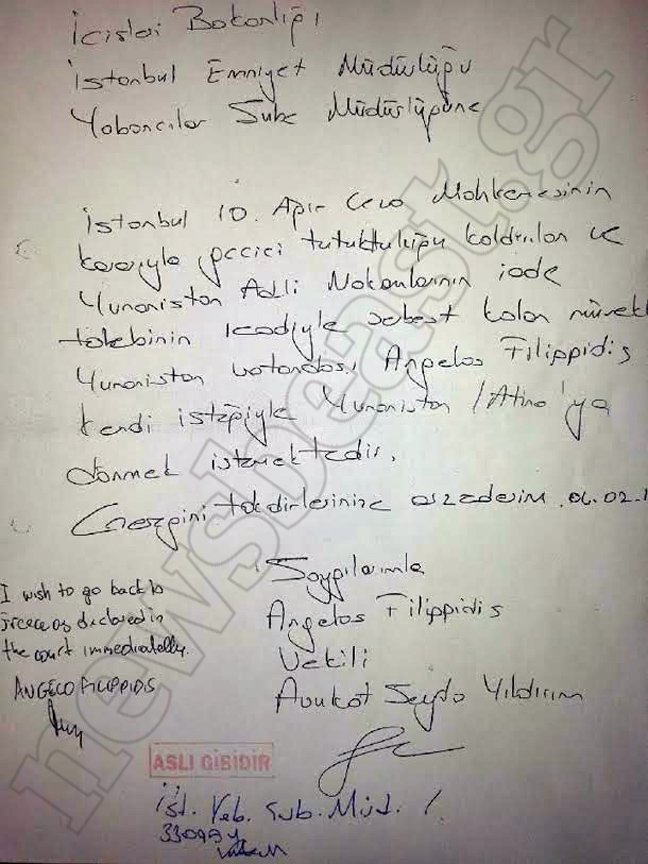 İcişleri Bakanlığı
İstanbul Emniyet Müdürlüğü
Yabancılar Şube Müdürlüğüne
İstanbul 10. Ağır Ceza Mahkemesinin
kararıyla geçici tutukluluğu kaldırılan ve
Yunanistan Adli Makamlarının iade
talebinin reddiyle serbest kalan
Yunanistan vatandaşı Angelos Filippidis
kendi isteğiyle Yunanistan / Atina'ya
dönmek istemektedir.
takdirlerinize arz ederim. 06.02.1
Saygılarımla
Angelos Filippidis
Vekili
Avukat Seyda Yıldırım
I wish to go back to
Greece as declared in
the court immediatelly.
ANGELO FILIPPIDIS
ASLI GİBİDİR
İst. Yab. Şub. Müd.
newsbeast.gr